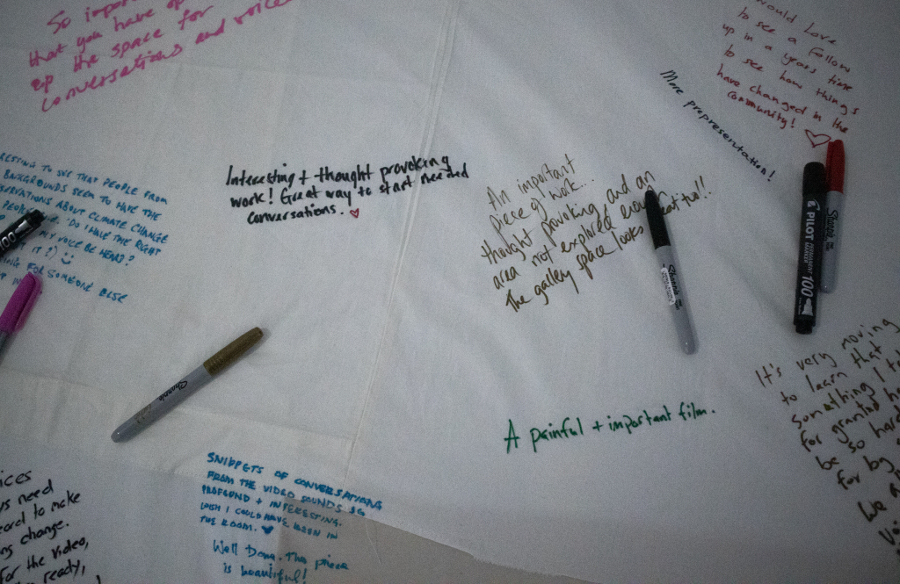 So impor
that you have op
up the space for
conversations and voice
would love
to see a follow
up in a years time
to see how things
have changed in the
community!
More prepresentation!
RESTING TO SEE THAT PEOPLE FROM
BACKGROUNDS SEEM TO HAVE THE
ERVATIONS ABOUT CLIMATE CHANGE
'DO I HAVE THE RIGHT
VOICE BE HEARD?
FOR SOMEONE ELSE
Interesting + thought provoking
work! Great way to start needed
conversations.
An important
piece of work...
thought provoking and an
area not explored
The gallery space looks great too!!
Sharpie
Sharpie
Sharpie
PILOT
PERMANENT MARKER
100
It's very moving
to learn that
something I t
for granted ha
be so hard
for by
We a
A painful + important film.
ices
ys need
eard to make
ng change.
For the video,
ready,
SNIPPETS OF CONVERSATIONS
FROM THE VIDEO SOUNDS SO
PROFOUND + INTERESTING.
WISH I COULD HAVE BEEN IN
THE ROOM.
Well Done. This piece
is beautiful!